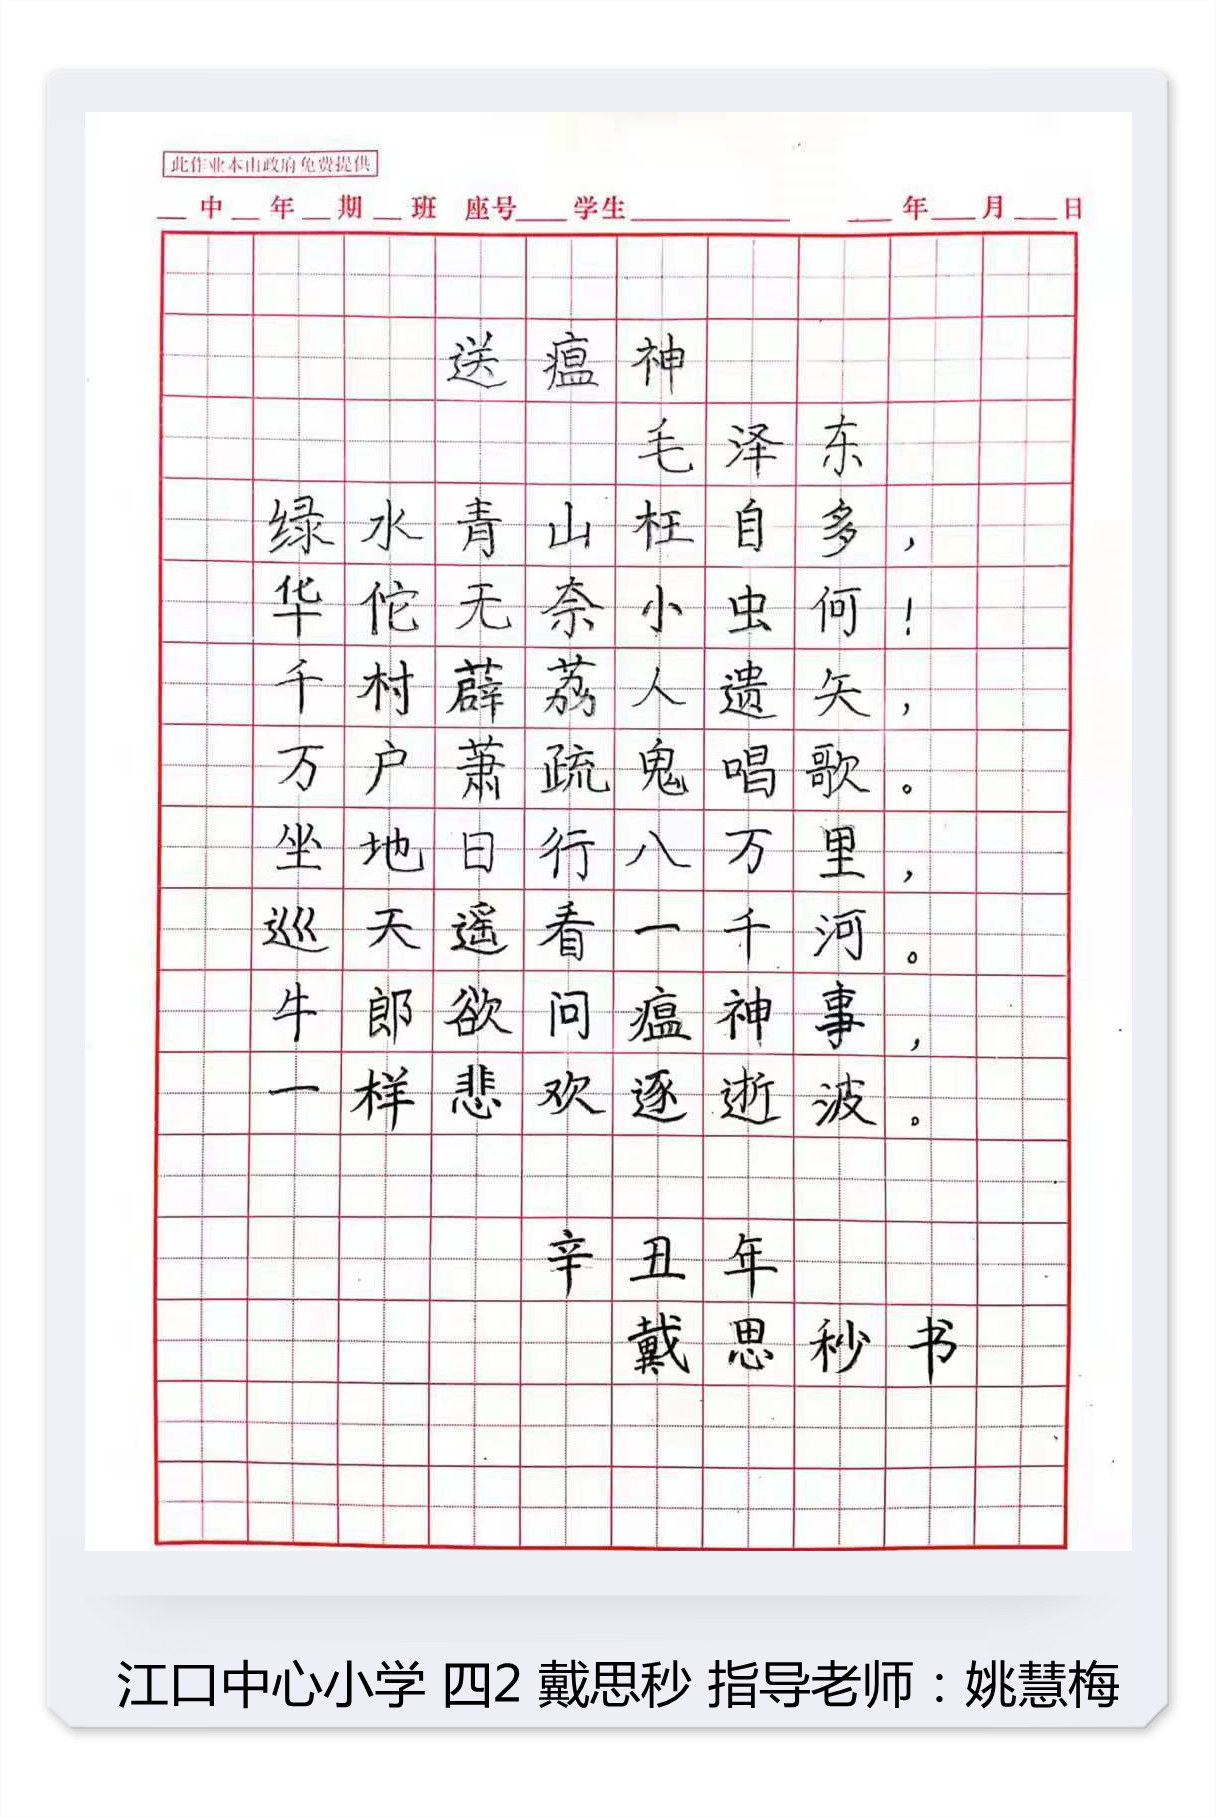 此作业本由政府免费提供
__中__年__期__班 座号____学生____________ ____年____月____日
送瘟神
毛泽东
绿水青山枉自多，
华佗无奈小虫何！
千村薜荔人遗矢，
万户萧疏鬼唱歌。
坐地日行八万里，
巡天遥看一千河。
牛郎欲问瘟神事，
一样悲欢逐逝波。
辛丑年
戴思秒书
江口中心小学 四2 戴思秒 指导老师：姚慧梅